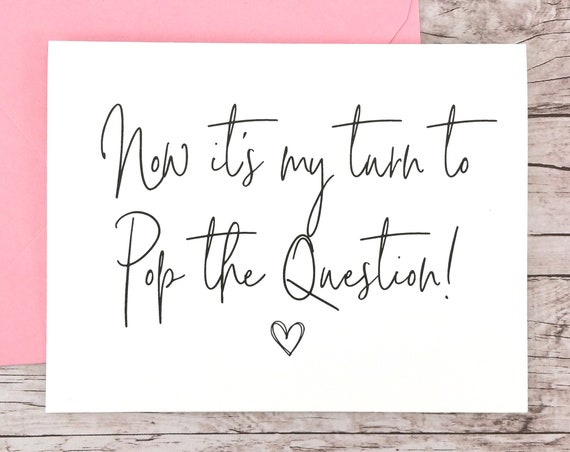 Now it's my turn to
Pop the Question!